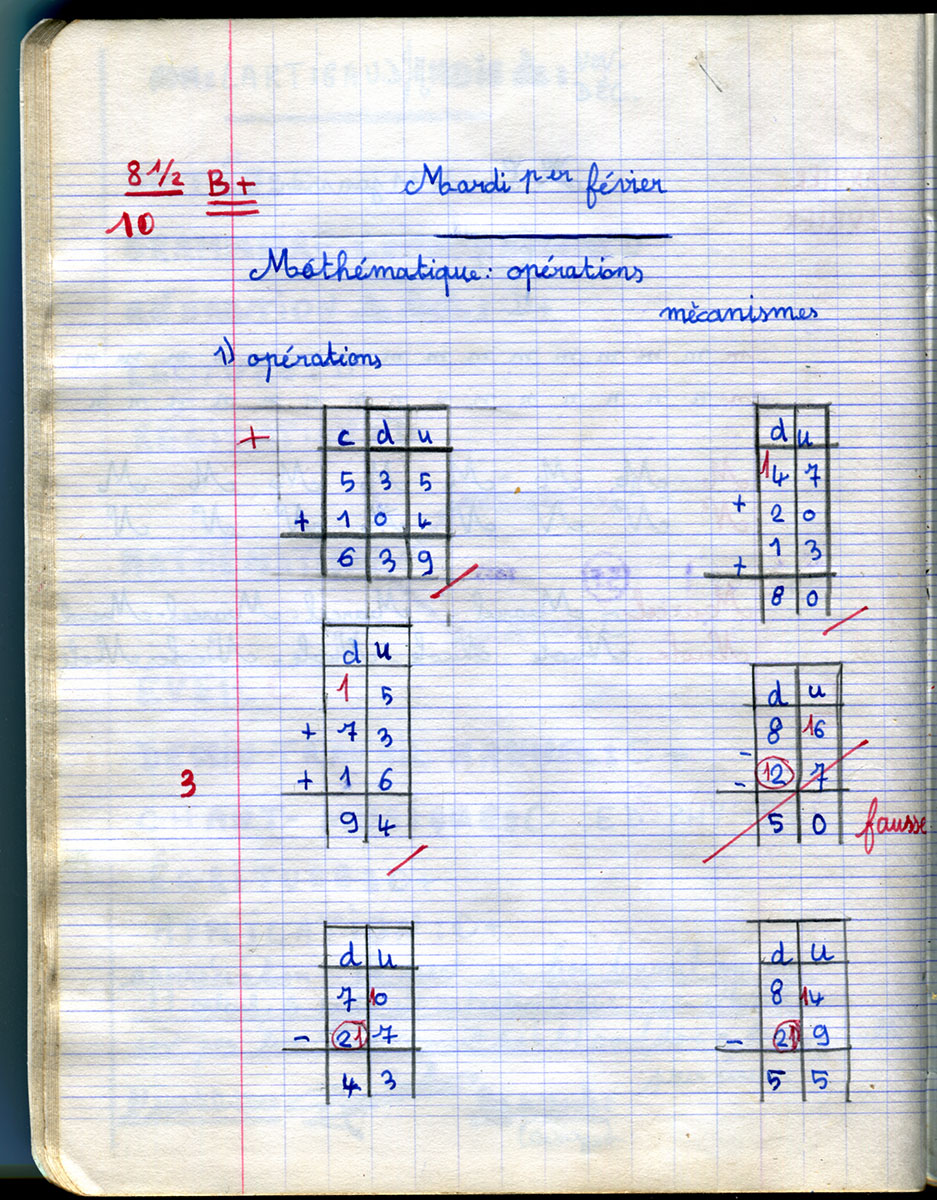 8 1/2 B+ Mardi 1er févier
10
Mathématique : opérations
mécanismes
1) opérations
+ c d u
5 3 5
+ 1 0 4
6 3 9
d u
1 4 7
+ 2 0
+ 1 3
8 0
d u
1 5
+ 7 3
+ 1 6
9 4
3
d u
8 16
-
- 12 7
5 0
fausse
d u
7 10
- 21 7
4 3
d u
8 14
- 21 9
5 5